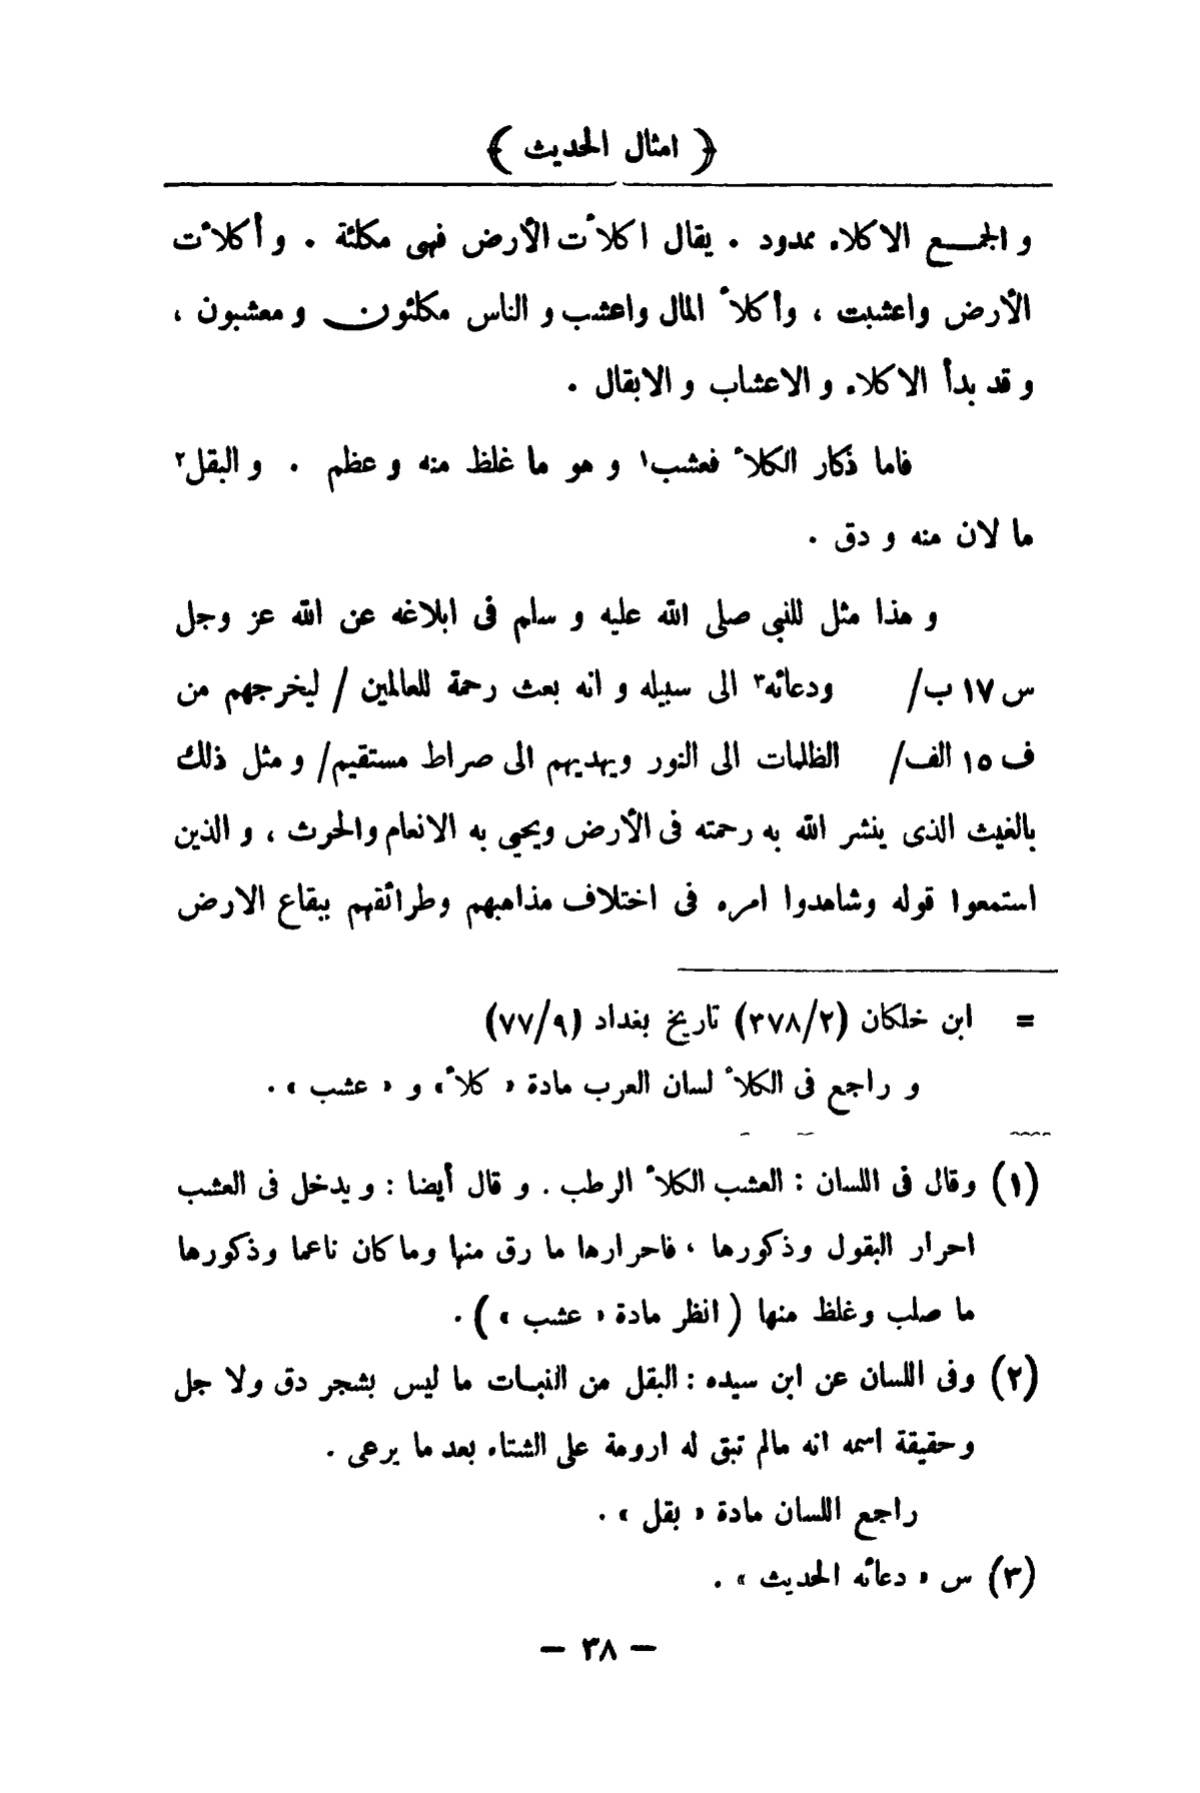 ﴿ امثال الحديث ﴾
و الجمـــع الاكلاء ممدود . يقال اكلأت الأرض فهى مكلئة . و أكلأت
الأرض واعشبت ، وأكلأ المال واعشب و الناس مكلئون و معشبون ،
و قد بدأ الاكلاء و الاعشاب و الابقال .
فاما ذكار الكلأ فعشب١ و هو ما غلظ منه و عظم . و البقل٢
ما لان منه و دق .
و هذا مثل للنبى صلى الله عليه و سلم فى ابلاغه عن الله عز وجل
س ١٧ ب/ ودعائه٣ الى سبيله و انه بعث رحمة للعالمين / ليخرجهم من
ف ١٥ الف/ الظلمات الى النور ويهديهم الى صراط مستقيم/ و مثل ذلك
بالغيث الذى ينشر الله به رحمته فى الأرض ويحيى به الانعام والحرث ، و الذين
استمعوا قوله وشاهدوا امره فى اختلاف مذاهبهم وطرائقهم ببقاع الارض
= ابن خلكان (٣٧٨/٢) تاريخ بغداد (٧٧/٩)
و راجع فى الكلأ لسان العرب مادة « كلأ » و « عشب » .
(١) وقال فى اللسان : العشب الكلأ الرطب . و قال أيضا : و يدخل فى العشب
احرار البقول وذكورها ، فاحرارها ما رق منها وما كان ناعما وذكورها
ما صلب وغلظ منها ( انظر مادة « عشب » ) .
(٢) وفى اللسان عن ابن سيده : البقل من النبـات ما ليس بشجر دق ولا جل
وحقيقة اسمه انه مالم تبق له ارومة على الشتاء بعد ما يرعى .
راجع اللسان مادة « بقل » .
(٣) س « دعائه الحديث » .
— ٣٨ —